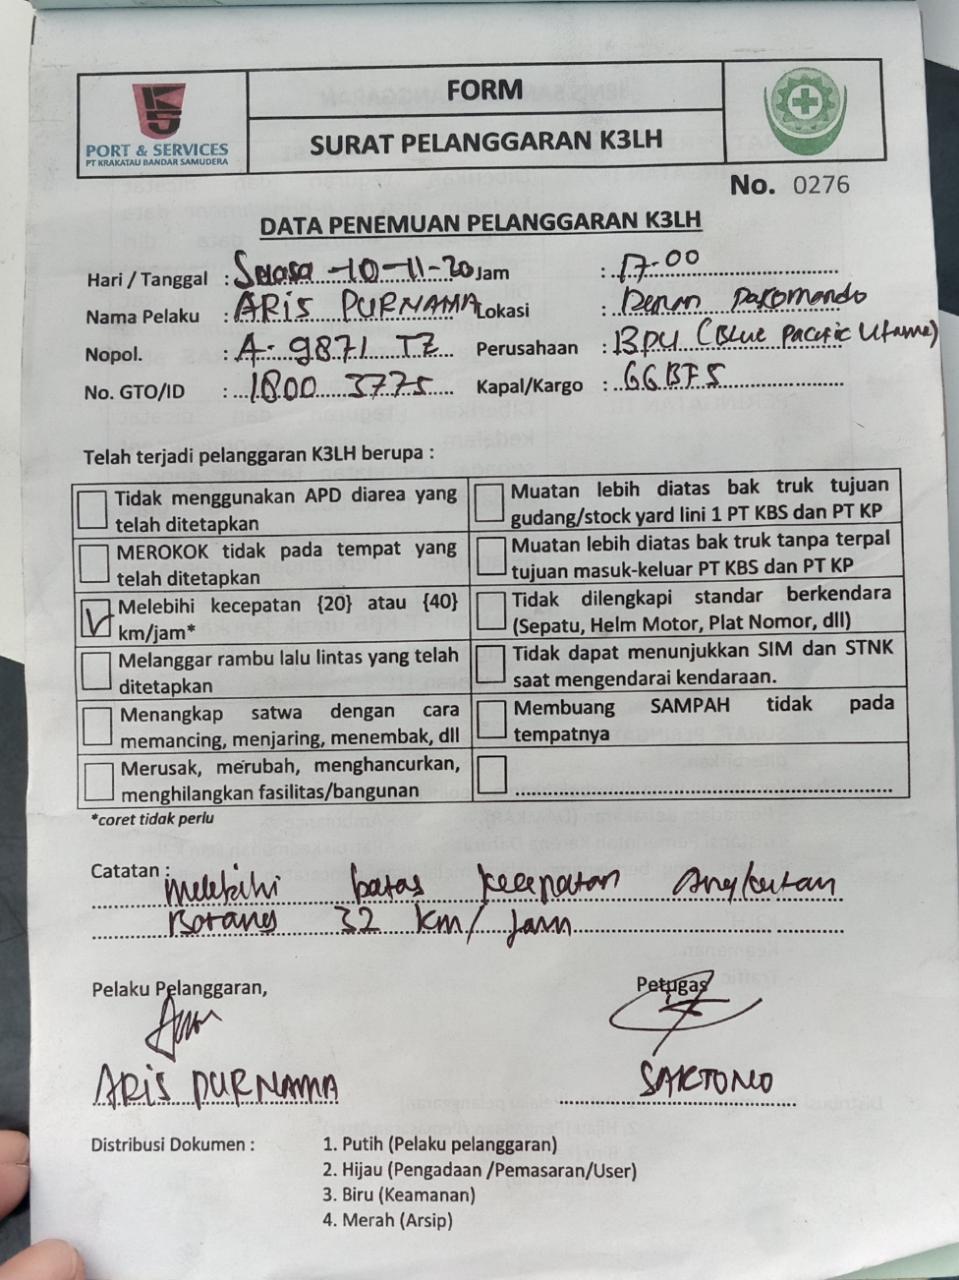 PORT & SERVICES
PT KRAKATAU BANDAR SAMUDERA
FORM
SURAT PELANGGARAN K3LH
No. 0276
DATA PENEMUAN PELANGGARAN K3LH
Hari / Tanggal : Selasa - 10-11-20 Jam : 17.00
Nama Pelaku : ARIS PURNAMA Lokasi :
Nopol. : A- 9871 TZ Perusahaan : BPU (Blue Pacific Utama)
No. GTO/ID : 1800 3775 Kapal/Kargo : GGBFS
Telah terjadi pelanggaran K3LH berupa :
Tidak menggunakan APD diarea yang telah ditetapkan
Muatan lebih diatas bak truk tujuan gudang/stock yard lini 1 PT KBS dan PT KP
MEROKOK tidak pada tempat yang telah ditetapkan
Muatan lebih diatas bak truk tanpa terpal tujuan masuk-keluar PT KBS dan PT KP
Melebihi kecepatan {20} atau {40} km/jam*
Tidak dilengkapi standar berkendara (Sepatu, Helm Motor, Plat Nomor, dll)
Melanggar rambu lalu lintas yang telah ditetapkan
Tidak dapat menunjukkan SIM dan STNK saat mengendarai kendaraan.
Menangkap satwa dengan cara memancing, menjaring, menembak, dll
Membuang SAMPAH tidak pada tempatnya
Merusak, merubah, menghancurkan, menghilangkan fasilitas/bangunan
*coret tidak perlu
Catatan : Melebihi batas kecepatan Angkutan
Barang 32 km/Jam
Pelaku Pelanggaran, Petugas
ARIS PURNAMA SARTONO
Distribusi Dokumen : 1. Putih (Pelaku pelanggaran)
2. Hijau (Pengadaan /Pemasaran/User)
3. Biru (Keamanan)
4. Merah (Arsip)